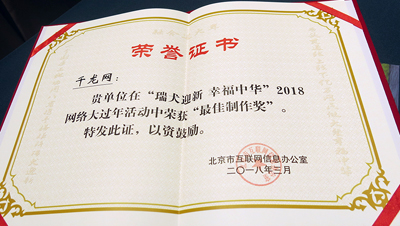 荣誉证书
千龙网：
贵单位在“瑞犬迎新 幸福中华”2018
网络大过年活动中荣获“最佳制作奖”。
特发此证，以资鼓励。
北京市互联网信息办公室
二〇一八年三月